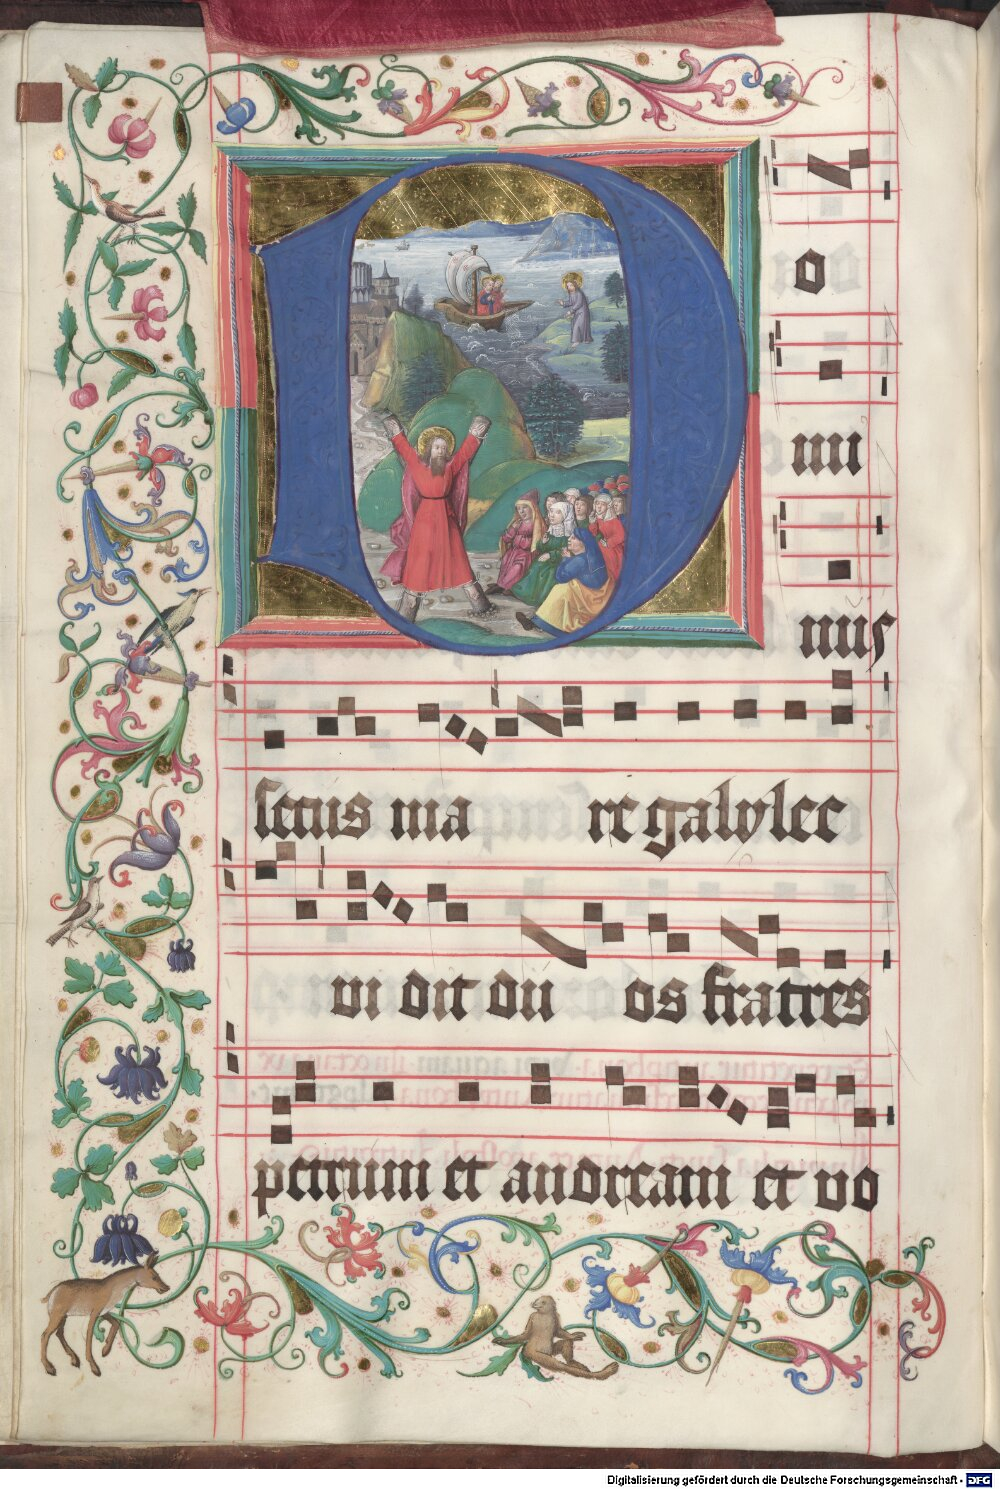 D
o
mi
nus
secus ma re galylee
vi dit du os fratres
petrum et andream et vo
Digitalisierung gefördert durch die Deutsche Forschungsgemeinschaft - DFG